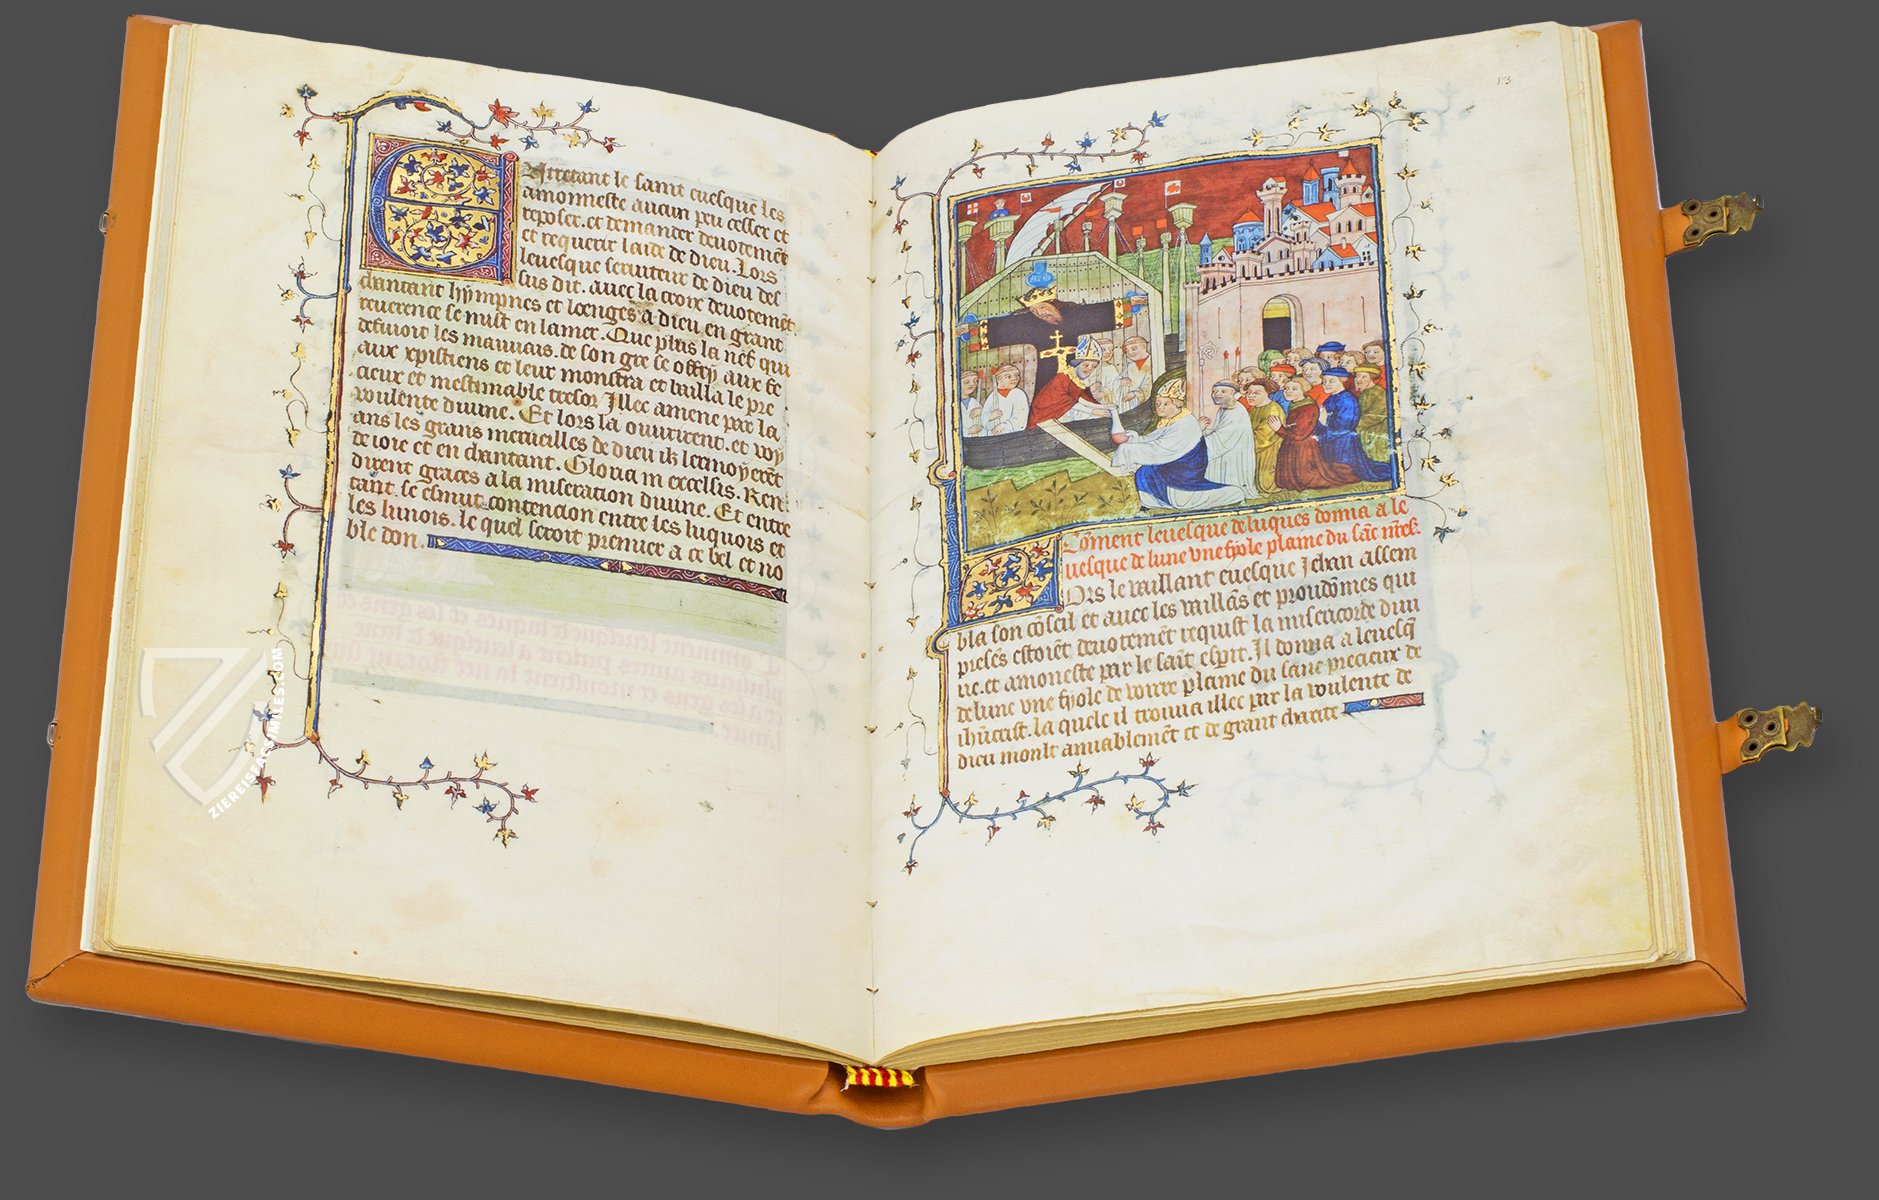 Arretant le saint euesque les
amonneste aucun peu cesser et
reposer. et demander deuotemēt
et requerir laide de dieu. Lors
leuesque seruiteur de dieu des
sus dit. auec la croix deuotemēt
chantant hympnes et loenges a dieu en grant
reuerence se mist en la mer. Que plus la nef qui
defuioit les mauuais. de son gre se offry aux fe
aux xpistiens et leur monstra et bailla le pre
cieux et mestimable tresor Illec amene par la
voulente diuine. Et lors la ouurirent. et voy
ans les grans merueilles de dieu ilz lermoyerēt
de ioie et en chantant. Gloria in excelsis. Ren
dirent graces a la miseration diuine. Et entre
tant. se esmut contencion entre les luquois et
les lunois. le quel seroit premier a ce bel et no
ble don.
13
Cōment leuesque de luques donna a le
uesque de lune vne fyole plaine du sāc
Ors le vaillant euesque Jehan assem
bla son cōseil et auec les vaillās et proudōmes qui
presēs estoiēt deuotemēt requist la misericorde diui
ne. et amoneste par le saīt esprit. Il donna a leuesq̄
de lune vne fyole de voirre plaine du sanc precieux de
ihūcrist. la quele il trouua illec par la voulente de
dieu moult amiablemēt et de grant charite
ZIEREIS FACSIMILES.COM